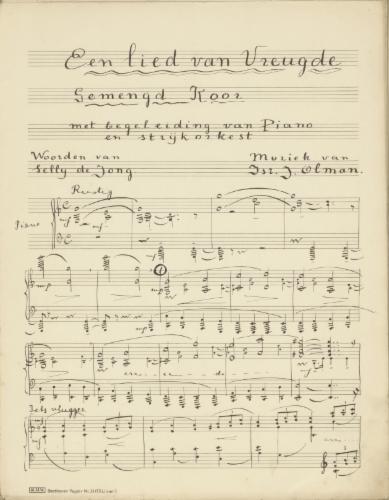 Een lied van Vreugde
Gemengd Koor
met begeleiding van Piano
en strijkorkest
Woorden van
Selly de Jong
Muziek van
Isr. J. Olman.
Rustig
Piano
mf
mp
Iets vlugger